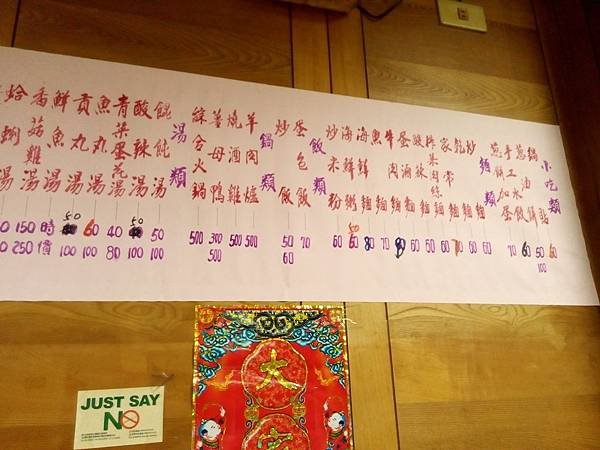 小吃類
鍋貼 60
蔥油餅 50 100
手工水餃 60
蔥餅加蛋 70
麵類
炒麵 60
乾麵 60
家常麵 70
榨菜肉絲麵 60
酸辣麵 50
蛋酒麵 60
牛肉麵 90
魚麵 70
海鮮麵 80
海鮮粥 60
炒米粉 60
飯類
蛋包飯 70
炒飯 50 60
鍋類
羊肉爐 500
燒酒雞 500
薑母鴨 300 500
綜合火鍋 500
湯類
餛飩湯 50 100
酸辣湯 50 100
青菜蛋花湯 40 80
魚丸湯 60 100
貢丸湯 50 100
鮮魚湯 時價
香菇雞湯 150 250
蛤蜊湯
大
JUST SAY
NO